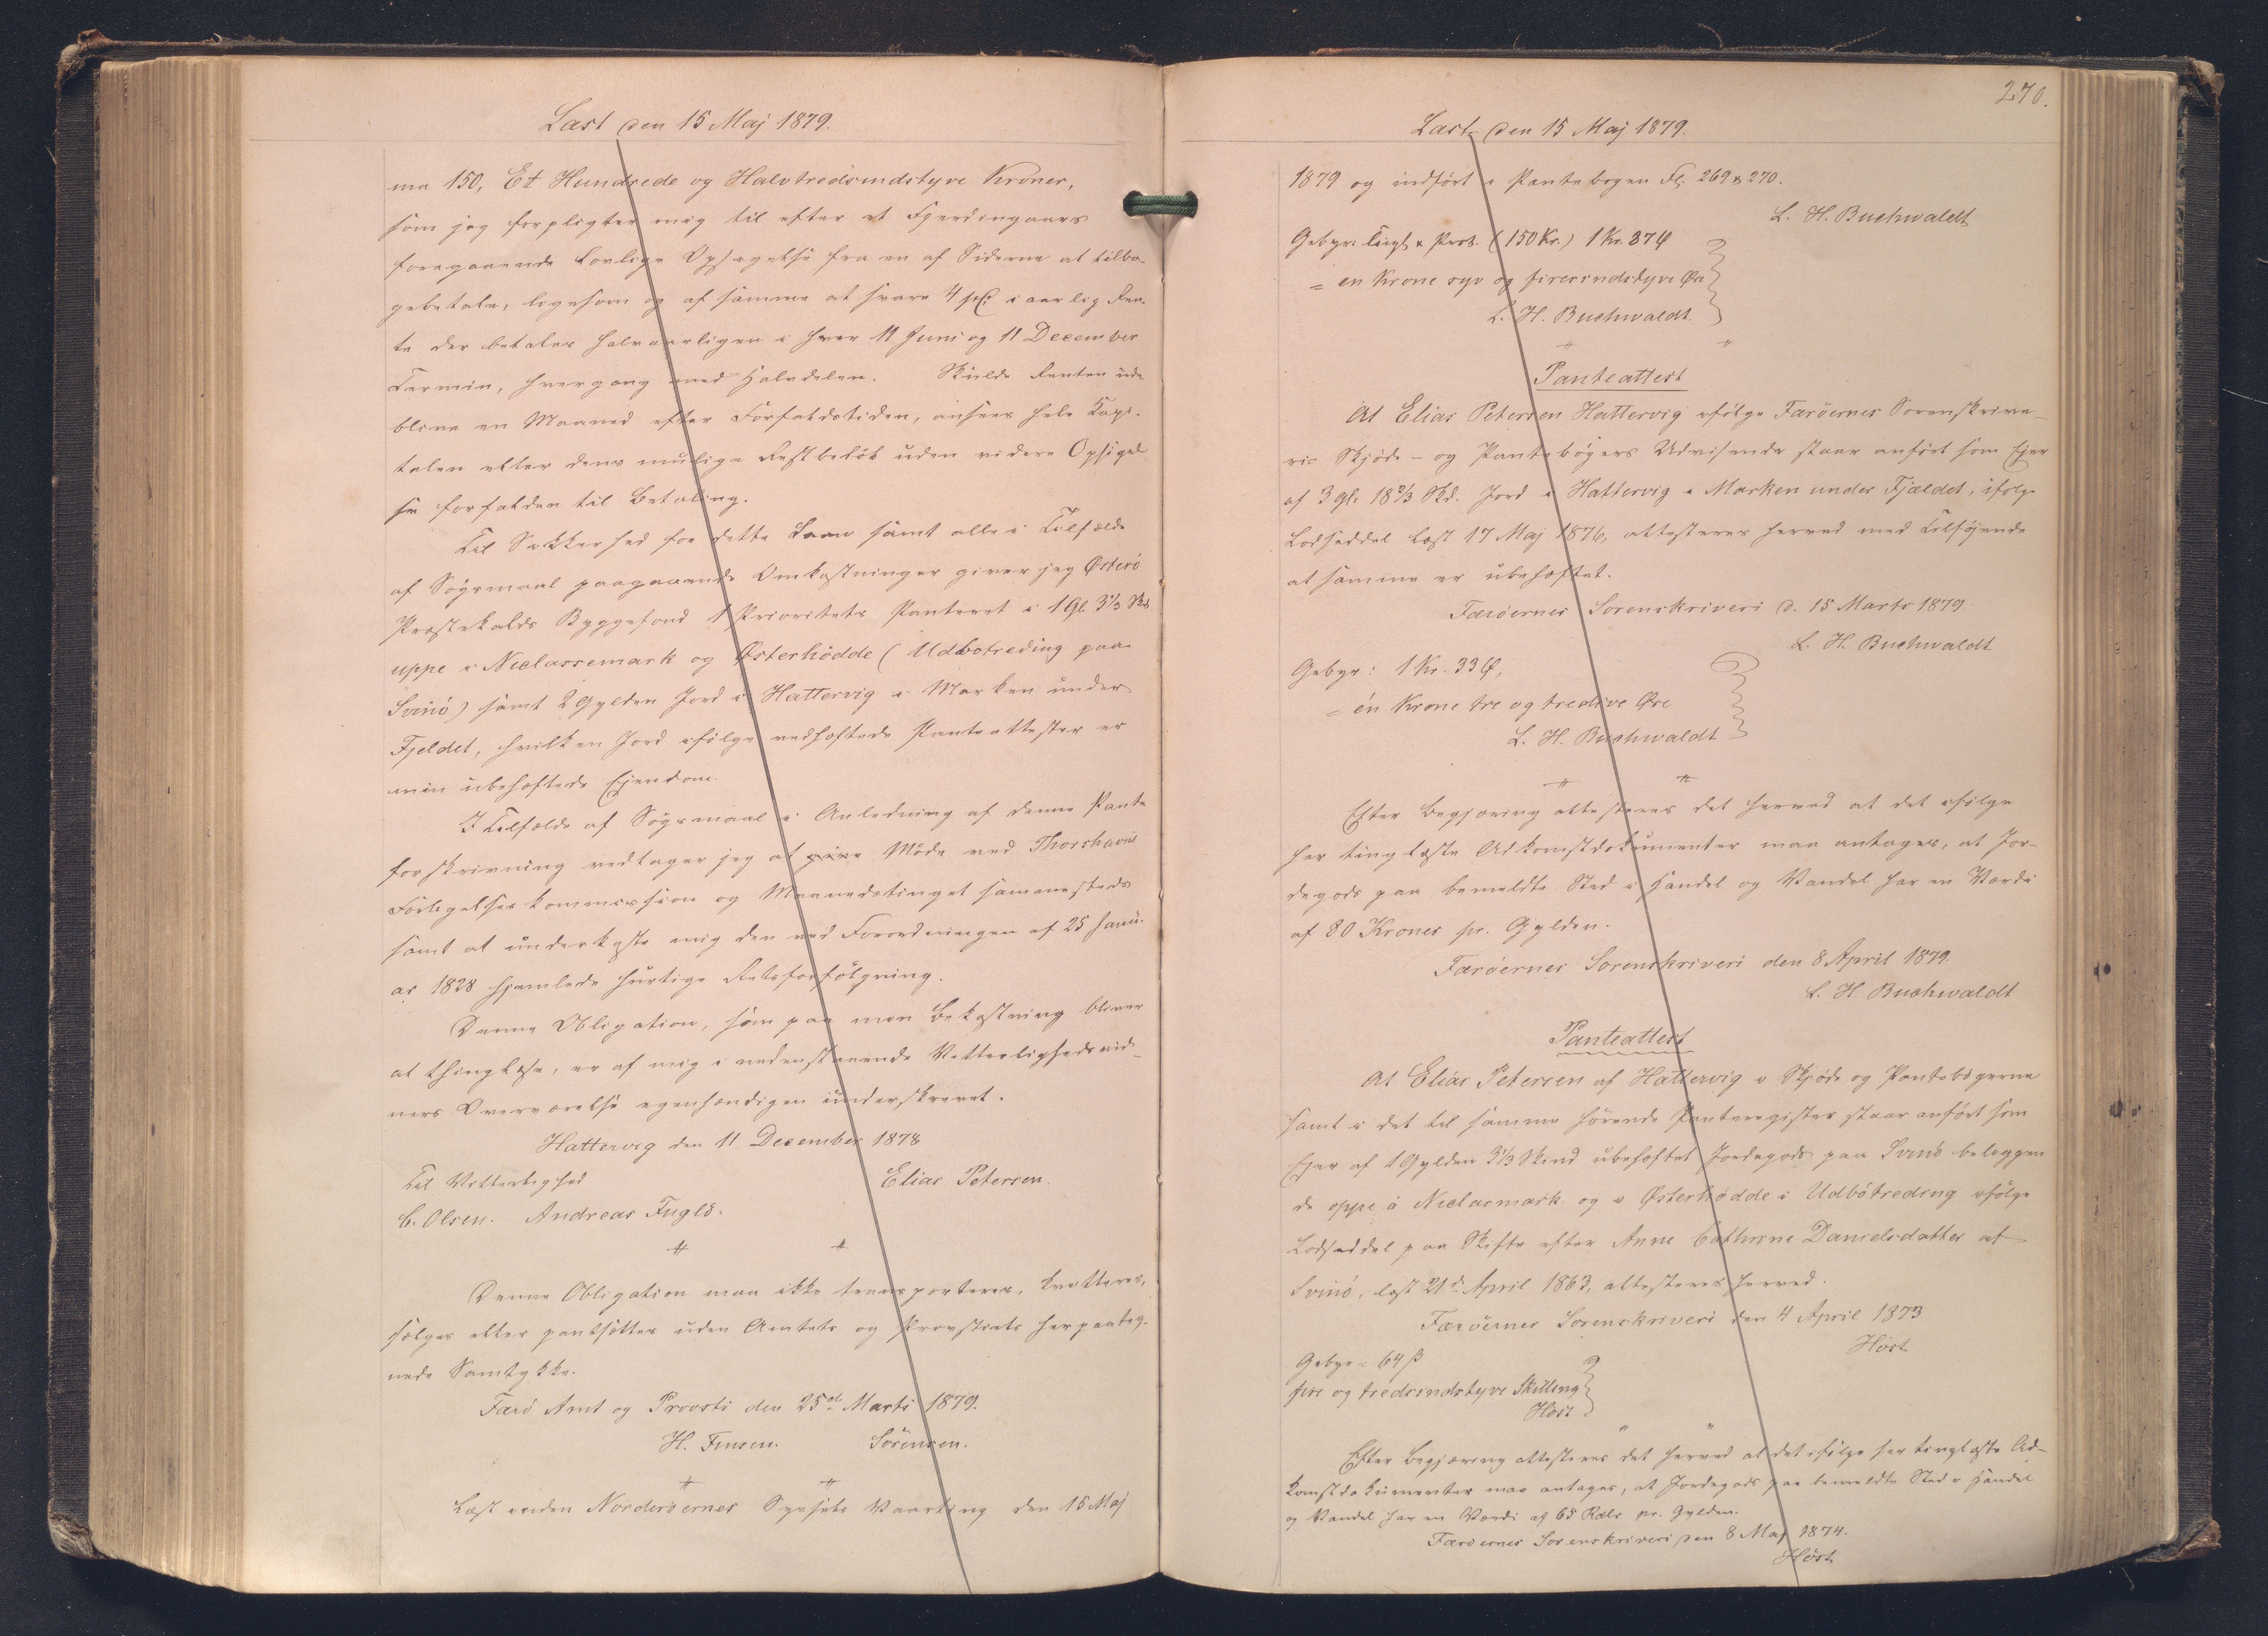 Læst den 15 Maj 1879.
ma 150, Et Hundrede og Halvtredsindstyve Kroner,
som jeg forpligter mig til efter et Fjerdingaars
foregaaende lovlige Opsigelse fra en af Siderne at tilba-
gebetale, ligesom og af samme at svare 4 pC. i aarlig Ren-
te der betales halvaarligen i hver 11 Juni og 11 December
Termin, hvergang med Halvdelen. Skulde Renten ude
blive en Maaned efter Forfaldstiden, ansees hele Kapi-
talen eller dens mulige Restbeløb uden videre Opsigel
se forfalden til Betaling.
Til Sikkerhed for dette Laan samt alle i Tilfælde
af Søgsmaal paagaaende Omkostninger giver jeg Østerø
Præstekalds Byggefond 1 Prioritets Panteret i 1 Gl. 3 1/3 Skd
uppe i Niclassemark og Østerhødde (Udbøtreding paa
Svinø) samt 2 Gylden Jord i Hattervig i Marken under
Fjeldet, hvilken Jord ifølge vedhæftede Panteattester er
min ubehæftede Ejendom.
I Tilfælde af Søgsmaal i Anledning af denne Pante
forskrivning vedtager jeg at give Møde ved Thorshavns
Forligelseskommission og Maanedstinget sammesteds
samt at underkaste mig den ved Forordningen af 25 Janu-
ar 1828 hjemlede hurtige Retsforfølgning.
Denne Obligation, som paa min Bekostning bliver
at thinglæse, er af mig i nedenstaaende Vitterlighedsvid-
ners Overværelse egenhændigen underskrevet.
Hattervig den 11 December 1878
Til Vitterlighed Elias Petersen.
C. Olsen. Andreas Fuglø.
Denne Obligation maa ikke transporteres, kvitteres,
sælges eller pantsættes uden Amtets og Provstiets herpaateg-
nede Samtykke.
Færø Amt og Provsti den 25de Marts 1879.
H. Finsen. Sørensen.
Læst inden Norderøernes Syssels Vaarting den 15 Maj
270.
Læst den 15 Maj 1879.
1879 og indført i Pantebogen Fl. 269 & 270.
L. H. Buchwaldt
Gebyr: Tingl. & Prot. (150 Kr.) 1 Kr. 87 Ø
= en Krone syv og firesindstyve Øre
L. H. Buchwaldt.
Panteattest
At Elias Petersen Hattervig ifølge Færøernes Sorenskrive-
ris Skjøde- og Pantebøgers Udvisende staar anført som Ejer
af 3 gl. 18 2/3 Skd. Jord i Hattervig i Marken under Fjældet, ifølge
Lodseddel læst 17 Maj 1876, attesteres herved med Tilføjende
at samme er ubehæftet.
Færøernes Sorenskriveri d. 15 Marts 1879
L. H. Buchwaldt
Gebyr: 1 Kr. 33 Ø,
= én Krone tre og tredive Øre
L. H. Buchwaldt
Efter Begjæring attesteres det herved at det ifølge
her tinglæste Adkomstdokumenter maa antages, at Jor-
degods paa bemeldte Sted i Handel og Vandel har en Værdi
af 80 Kroner pr. Gylden.
Færøernes Sorenskriveri den 8 April 1879.
L. H. Buchwaldt
Panteattest
At Elias Petersen af Hattervig i Skjøde og Pantebøgerne
samt i det til samme hørende Panteregister staar anført som
Ejer af 1 Gylden 3 1/3 Skind ubehæftet Jordegods paa Svinø beliggen
de oppe á Niclasmark og i Østerhødde i Udbøtreding ifølge
Lodseddel paa Skifte efter Anne Cathrine Danielsdatter af
Svinø, læst 21de April 1863, attesteres herved.
Færøernes Sorenskriveri den 4 April 1873
Høst
Gebyr = 64 β
fire og tredsindstyve Skilling
Høst
Efter Begjæring attesteres det herved at det ifølge her tinglæste Ad-
komstdokumenter maa antages, at Jordegods paa bemeldte Sted i Handel
og Vandel har en Værdi af 65 Rdlr pr. Gylden.
Færøernes Sorenskriveri den 8 Maj 1874.
Høst